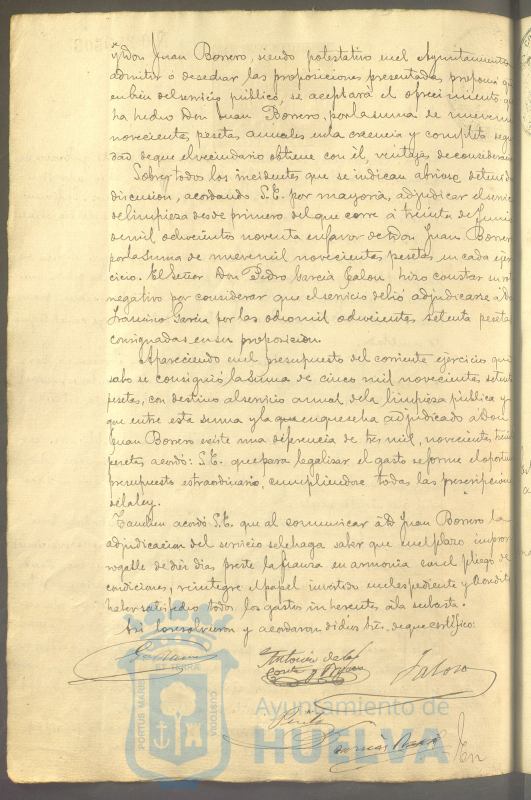 y Don Juan Borrero, siendo potestativo en el Ayuntamiento
admitir ó desechar las proposiciones presentadas, propone que
en bien del servicio público, se aceptara el ofrecimiento que
ha hecho Don Juan Borrero, por la suma de nueve mil
novecientas pesetas anuales en la creencia y completa segu
ridad de que el vecindario obtiene con él, ventajas de consideracion
Sobre todos los incidentes que se indican abriose detenida
discusion, acordando S.E. por mayoria, adjudicar el servicio
de limpieza desde primero del que corre á treinta de Junio
de mil ochocientos noventa en favor de Don Juan Borrero
por la suma de nueve mil novecientas pesetas en cada ejer
cicio. El Señor Don Pedro Garcia Jalon hizo constar su voto
negativo por considerar que el servicio debió adjudicarse á Don
Francisco Garcia por las ocho mil ochocientas setenta pesetas
consignadas en su proposicion.
Apareciendo en el presupuesto del corriente ejercicio que
solo se consignó la suma de cinco mil novecientas setenta
pesetas, con destino al servicio anual de la limpieza pública y
que entre esta suma y la que en que se ha adjudicado á Don
Juan Borrero existe una diferencia de tres mil, novecientas treinta
pesetas acordó: S.E. que para legalizar el gasto se forme el oportuno
presupuesto extraordinario, cumpliendose todas las prescripciones
de la ley.
Tambien acordó S.E. que al comunicar á D. Juan Borrero la
adjudicacion del servicio se le haga saber que en el plazo impror
rogable de diez dias preste la fianza en armonia con el pliego de
condiciones, reintegre el papel invertido en el expediente y acredite
haber satisfecho todos los gastos inherentes á la subasta.
Asi lo resolvieron y acordaron dichos Sres. de que certifico:
Antonio de la
Corte y
PORTUS MARIS
TERRÆ CUSTODIA
Ayuntamiento de
HUELVA